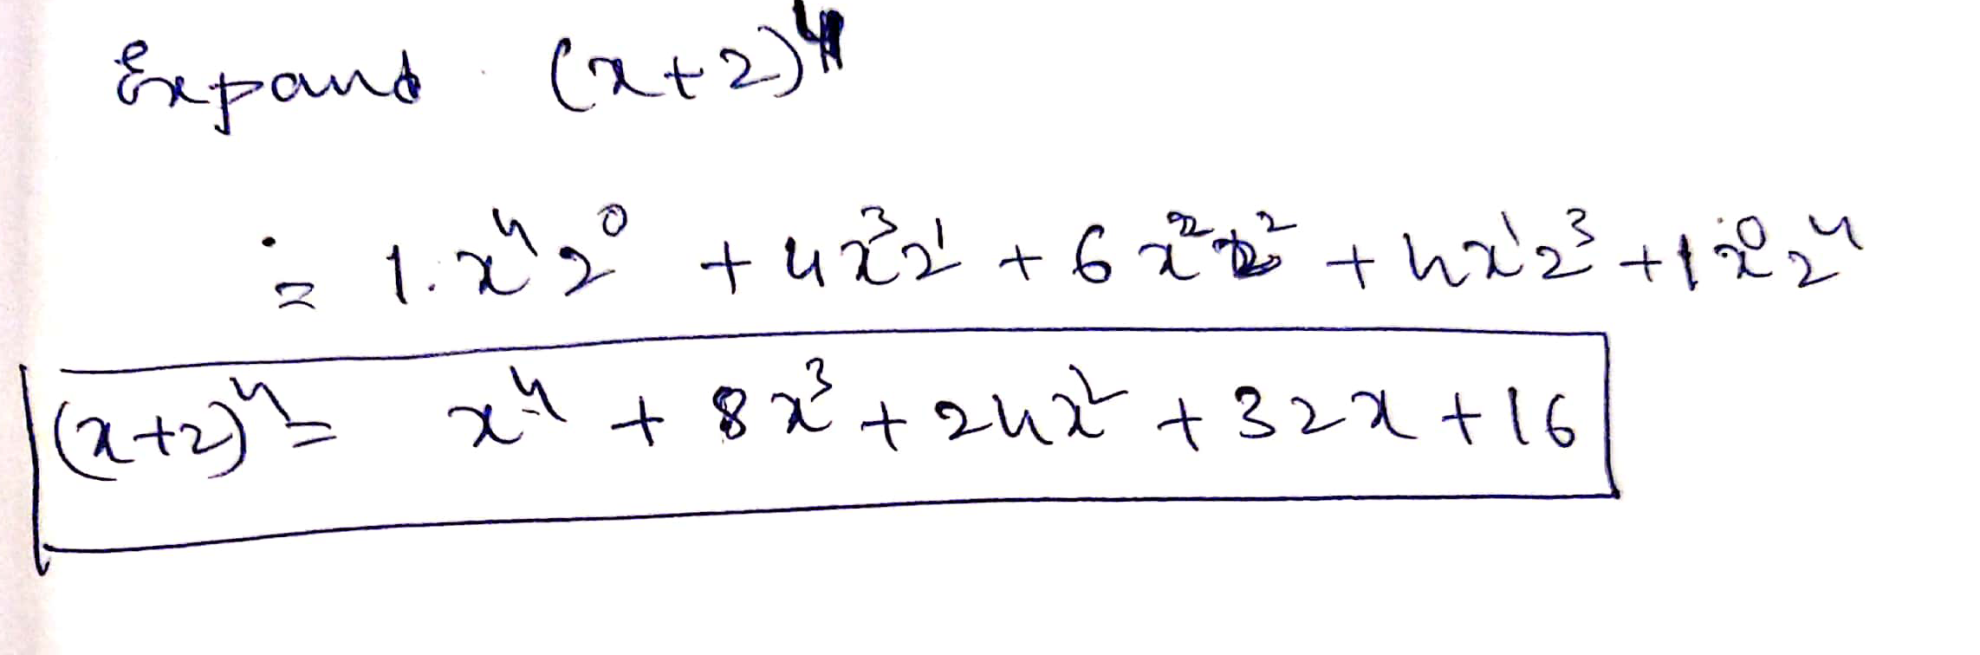 Expand (x+2)⁴
= 1.x⁴2⁰ + 4x³2¹ + 6x²2² + 4x¹2³ + 1x⁰2⁴
(x+2)⁴ = x⁴ + 8x³ + 24x² + 32x + 16